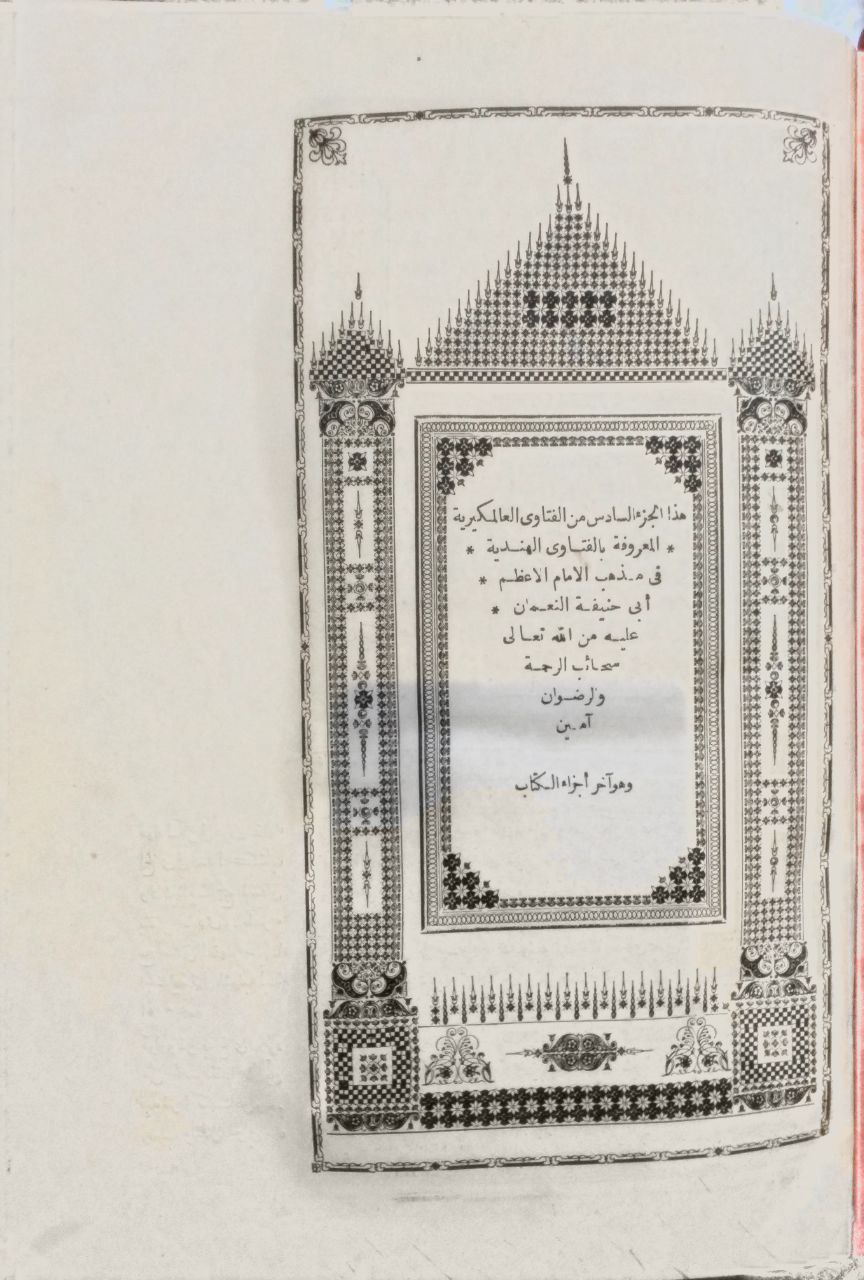 هذا الجزء السادس من الفتاوى العالمكيرية
* المعروفة بالفتاوى الهندية *
فى مذهب الامام الاعظم *
أبى حنيفة النعمان *
عليه من الله تعالى
سحائب الرحمة
والرضوان
آمين
وهو آخر أجزاء الكتاب